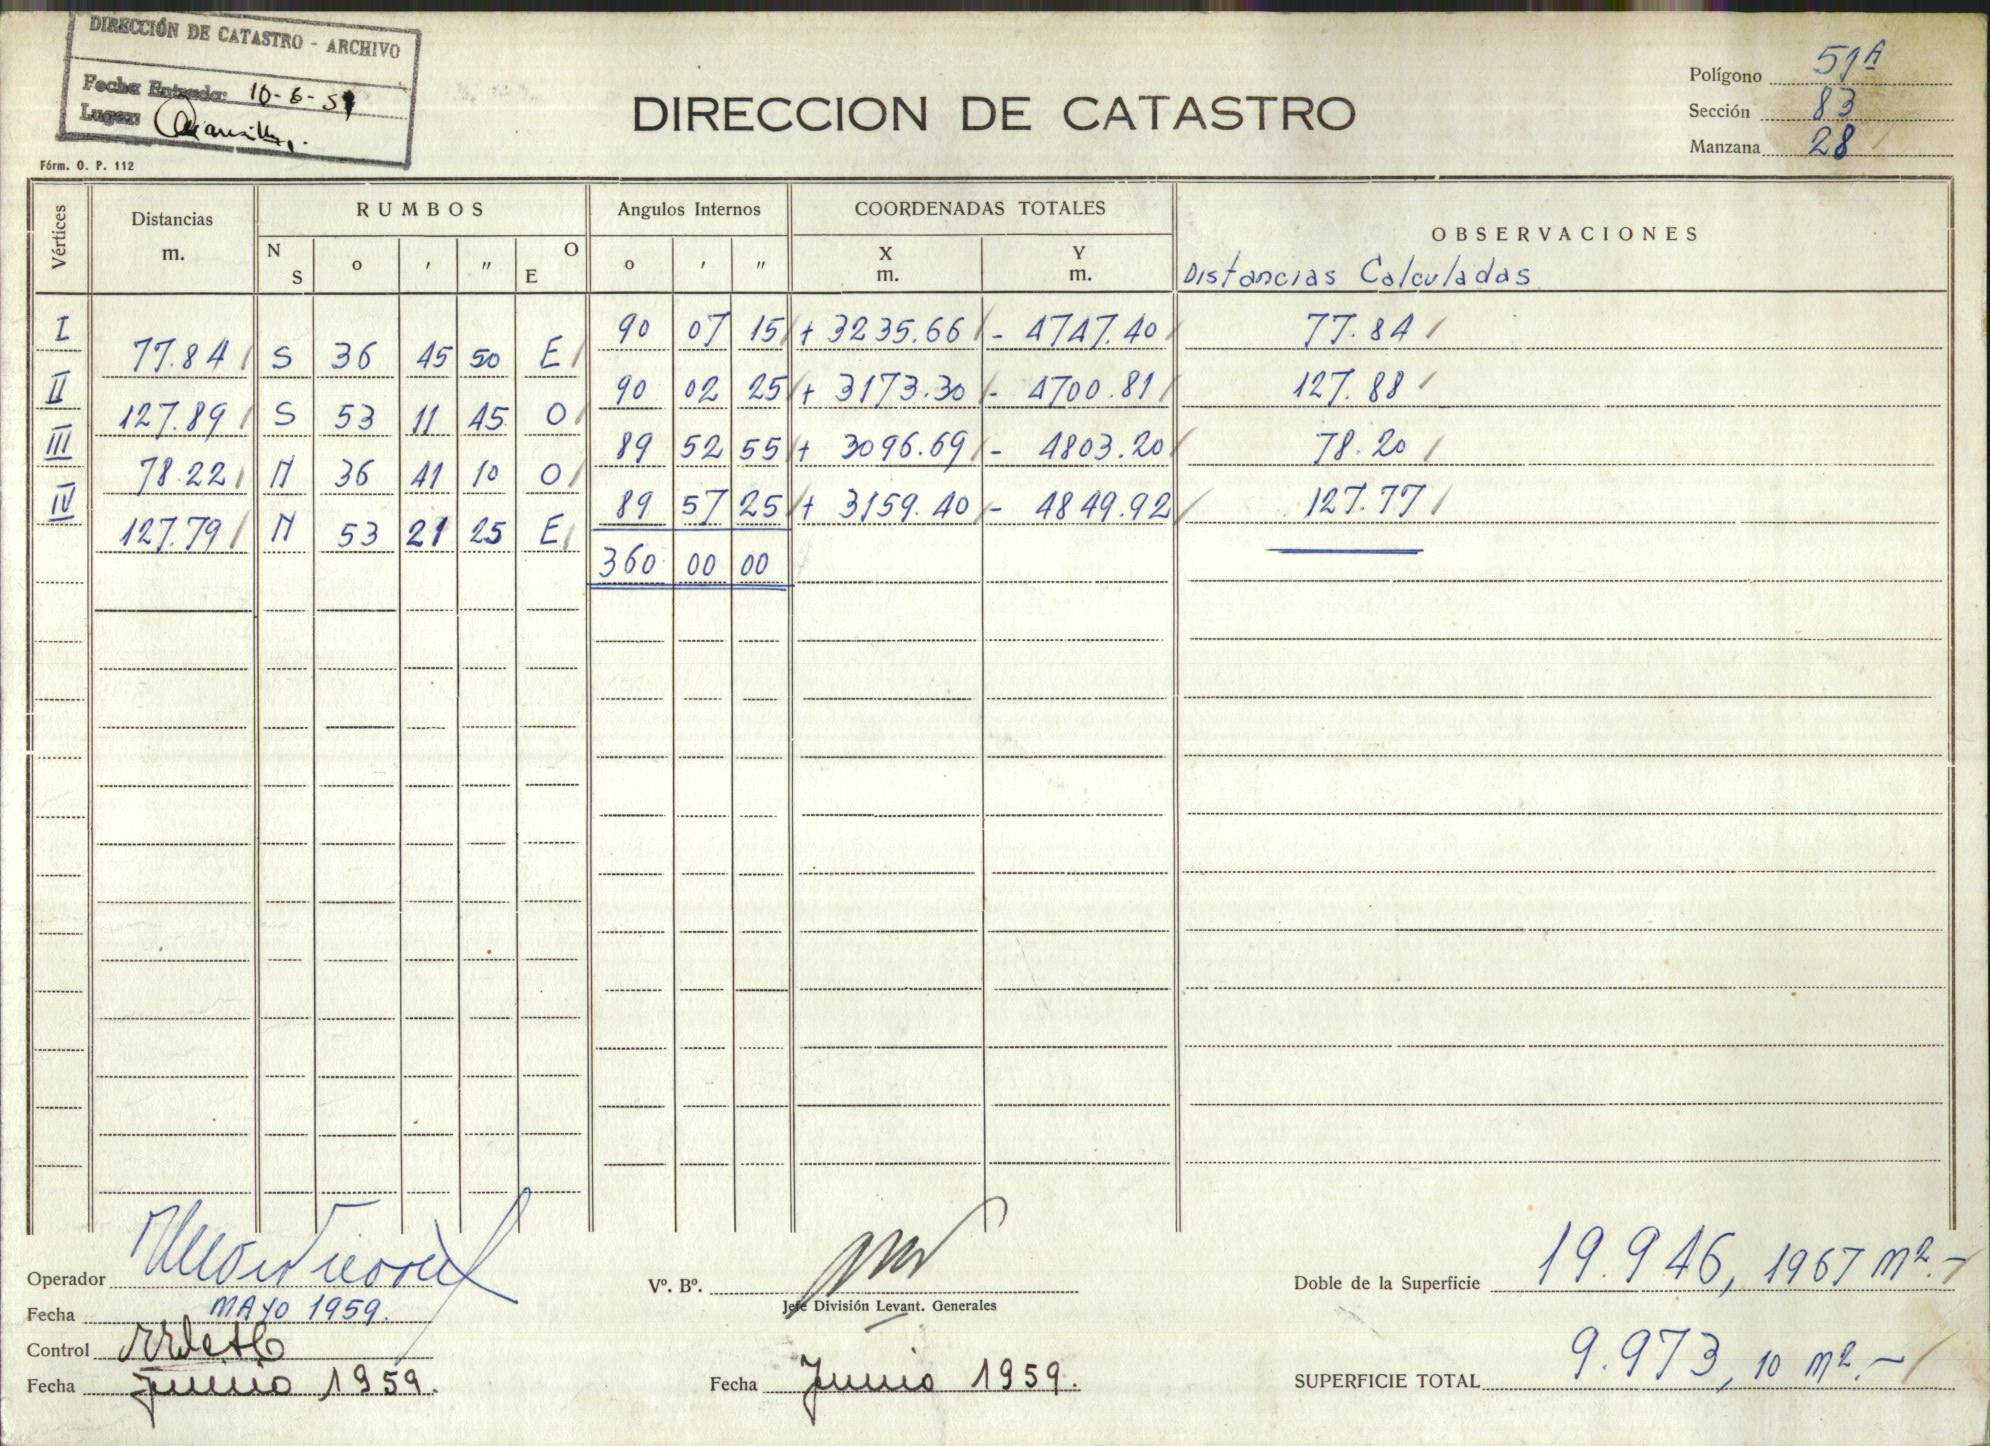 DIRECCIÓN DE CATASTRO - ARCHIVO
Fecha Entrada: 10-6-59
Lugar:
Polígono 51A
Sección 83
Manzana 28
DIRECCION DE CATASTRO
Fórm. O. P. 112
Vértices Distancias m. RUMBOS N S o ' " O E Angulos Internos o ' " COORDENADAS TOTALES X m. Y m. OBSERVACIONES
Distancias Calculadas
I 90 07 15 + 3235.66 - 4747.40 77.84
77.84 S 36 45 50 E
II 90 02 25 + 3173.30 - 4700.81 127.88
127.89 S 53 11 45 O
III 89 52 55 + 3096.69 - 4803.20 78.20
78.22 N 36 41 10 O
IV 89 57 25 + 3159.40 - 4849.92 127.77
127.79 N 53 21 25 E
360 00 00
Operador
Fecha MAYO 1959.
Control
Fecha Junio 1959.
Vº. Bº.
Jefe División Levant. Generales
Fecha Junio 1959.
Doble de la Superficie 19.946, 1967 m2.-
SUPERFICIE TOTAL 9.973, 10 m2.-